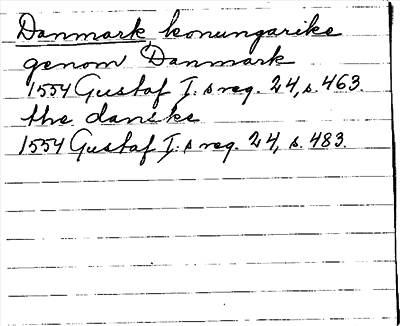 Danmark konungarike
genom Danmark
1554 Gustaf I:s reg. 24, s. 463.
the danske
1554 Gustaf I:s reg. 24, s. 483.